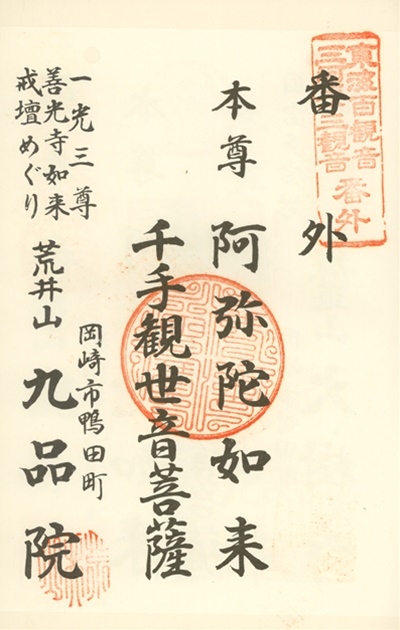 東海百観音
三河三十三観音
番外
番外
本尊 阿弥陀如来
千手観世音菩薩
一光三尊
善光寺如来
戒壇めぐり
岡崎市鴨田町
荒井山 九品院